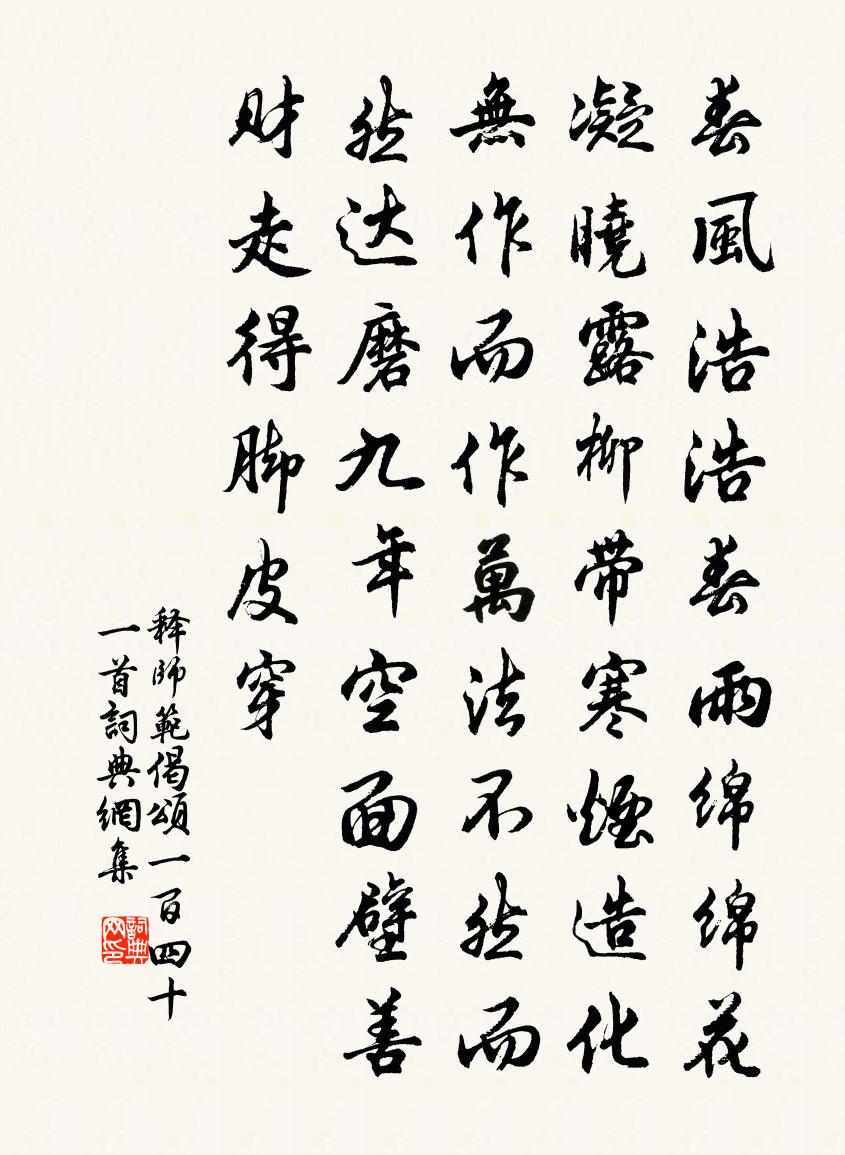 春風浩浩春雨綿綿花
凝曉露柳帶寒煙造化
無作而作萬法不然而
然达磨九年空面壁善
财走得脚皮穿
释師範偈頌一百四十
一首詞典網集
詞典网印